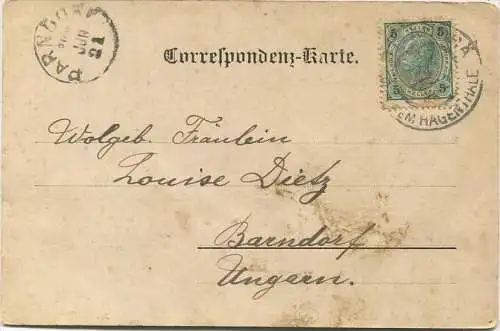 PARNDORF
JUN
21
Correspondenz-Karte.
5 5
HELLER
5 5
EM HAGENTHALE
Wolgeb. Fräulein
Louise Dietz
Barndorf
Ungarn.